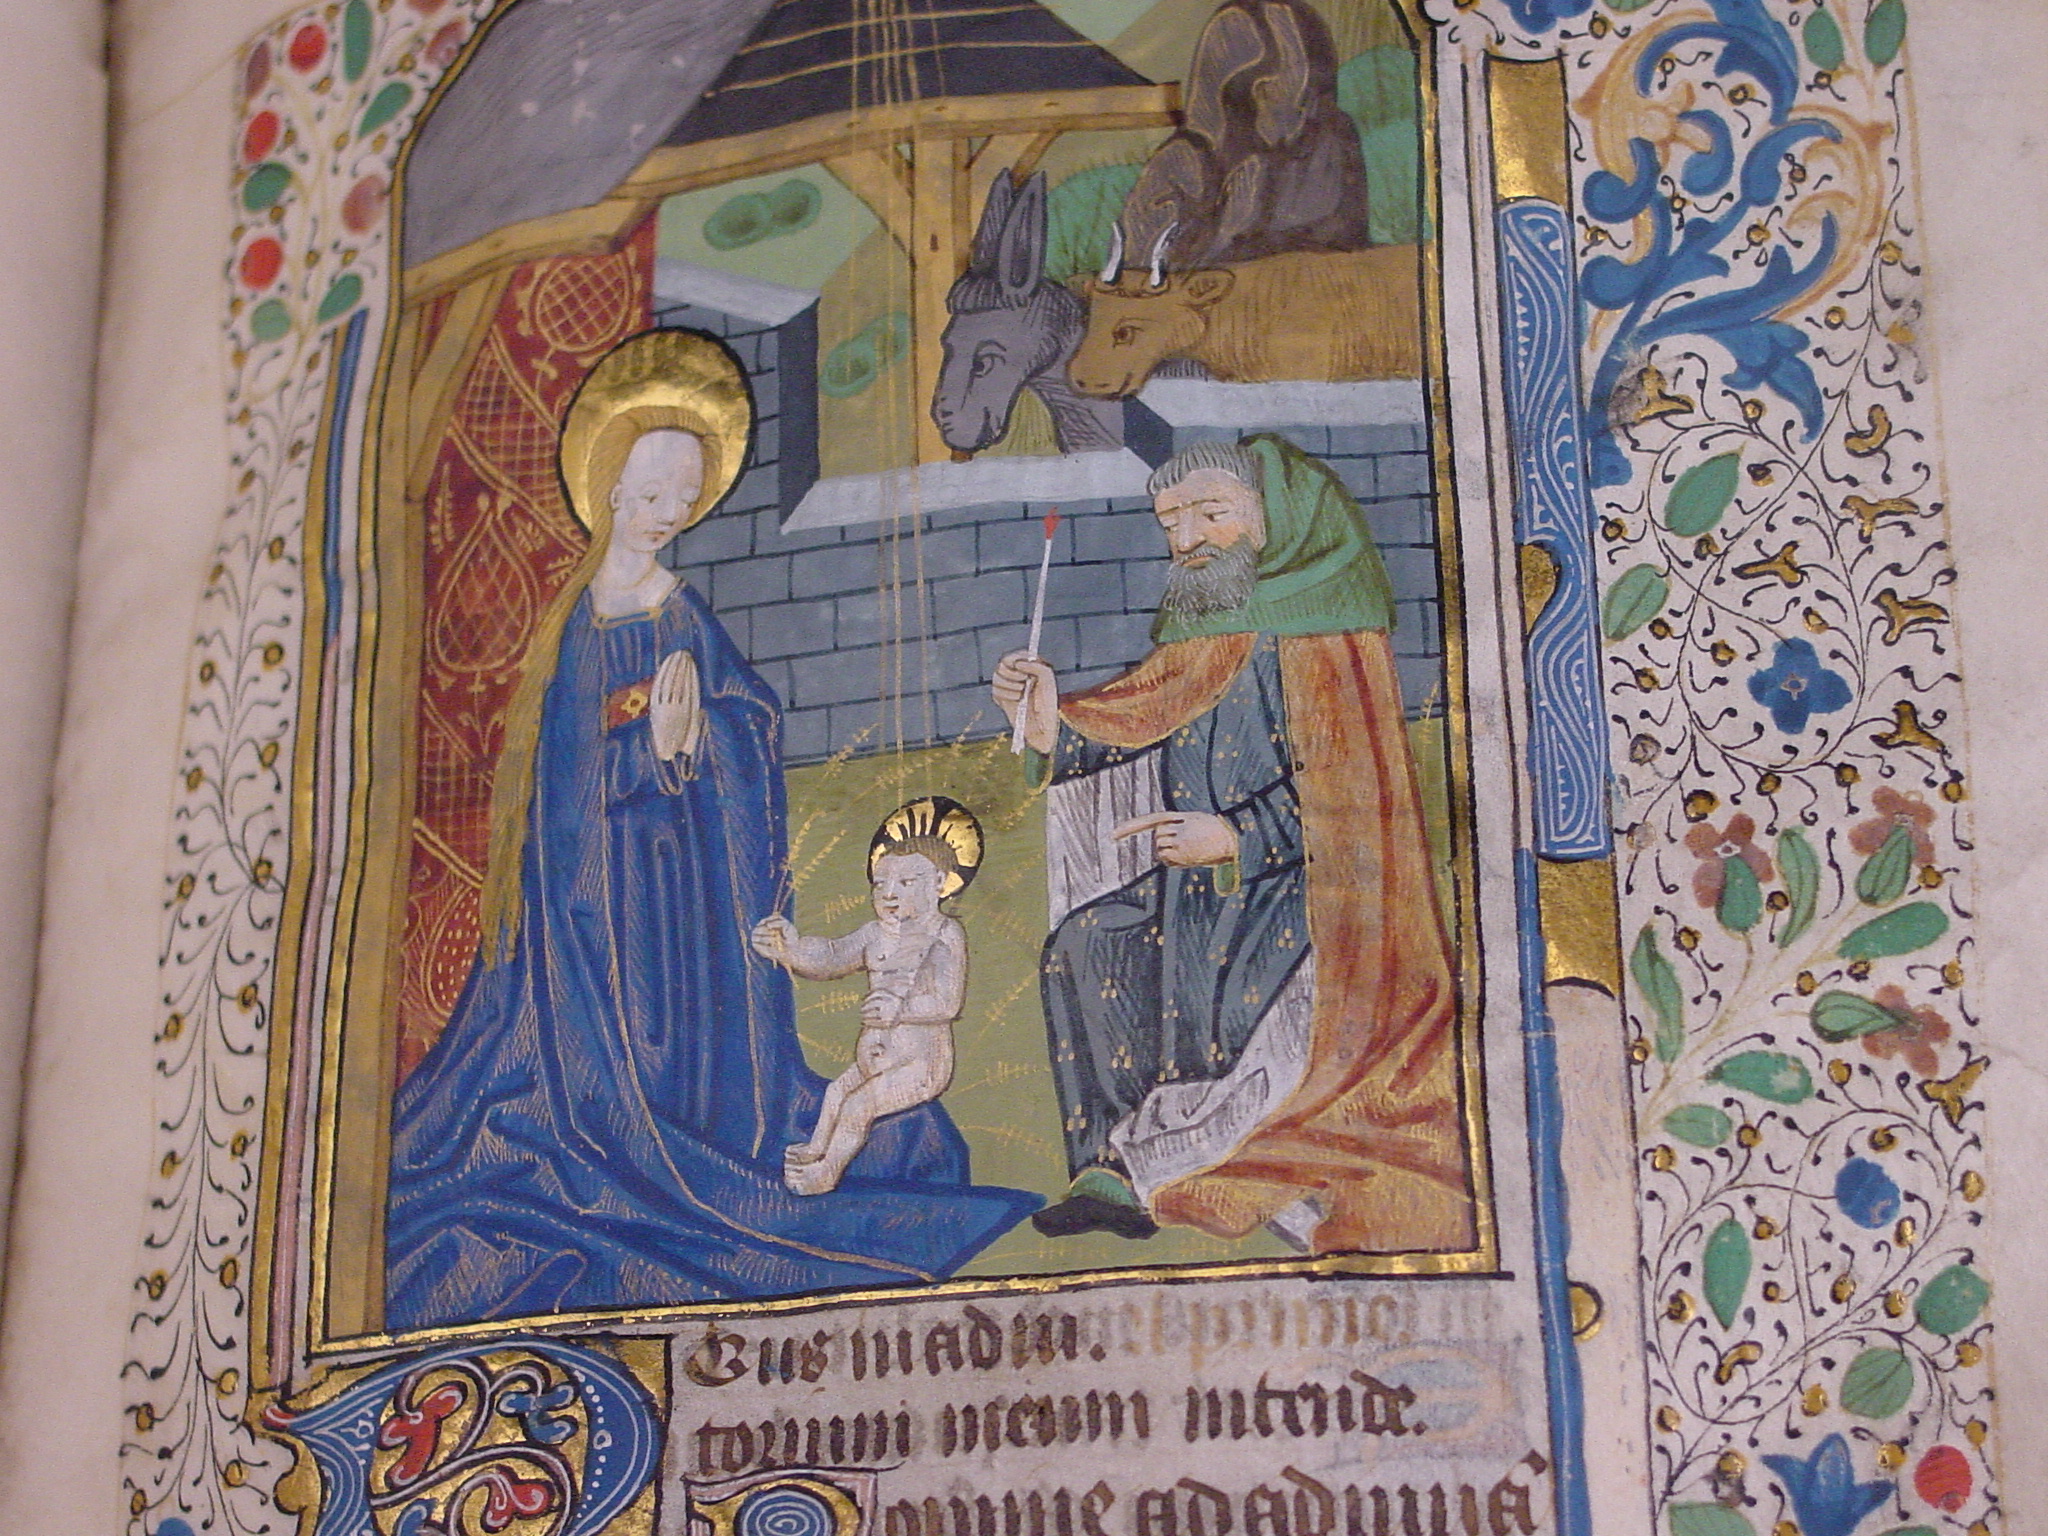 Deus in adiu.
torium meum intende.
Domine ad adiuua